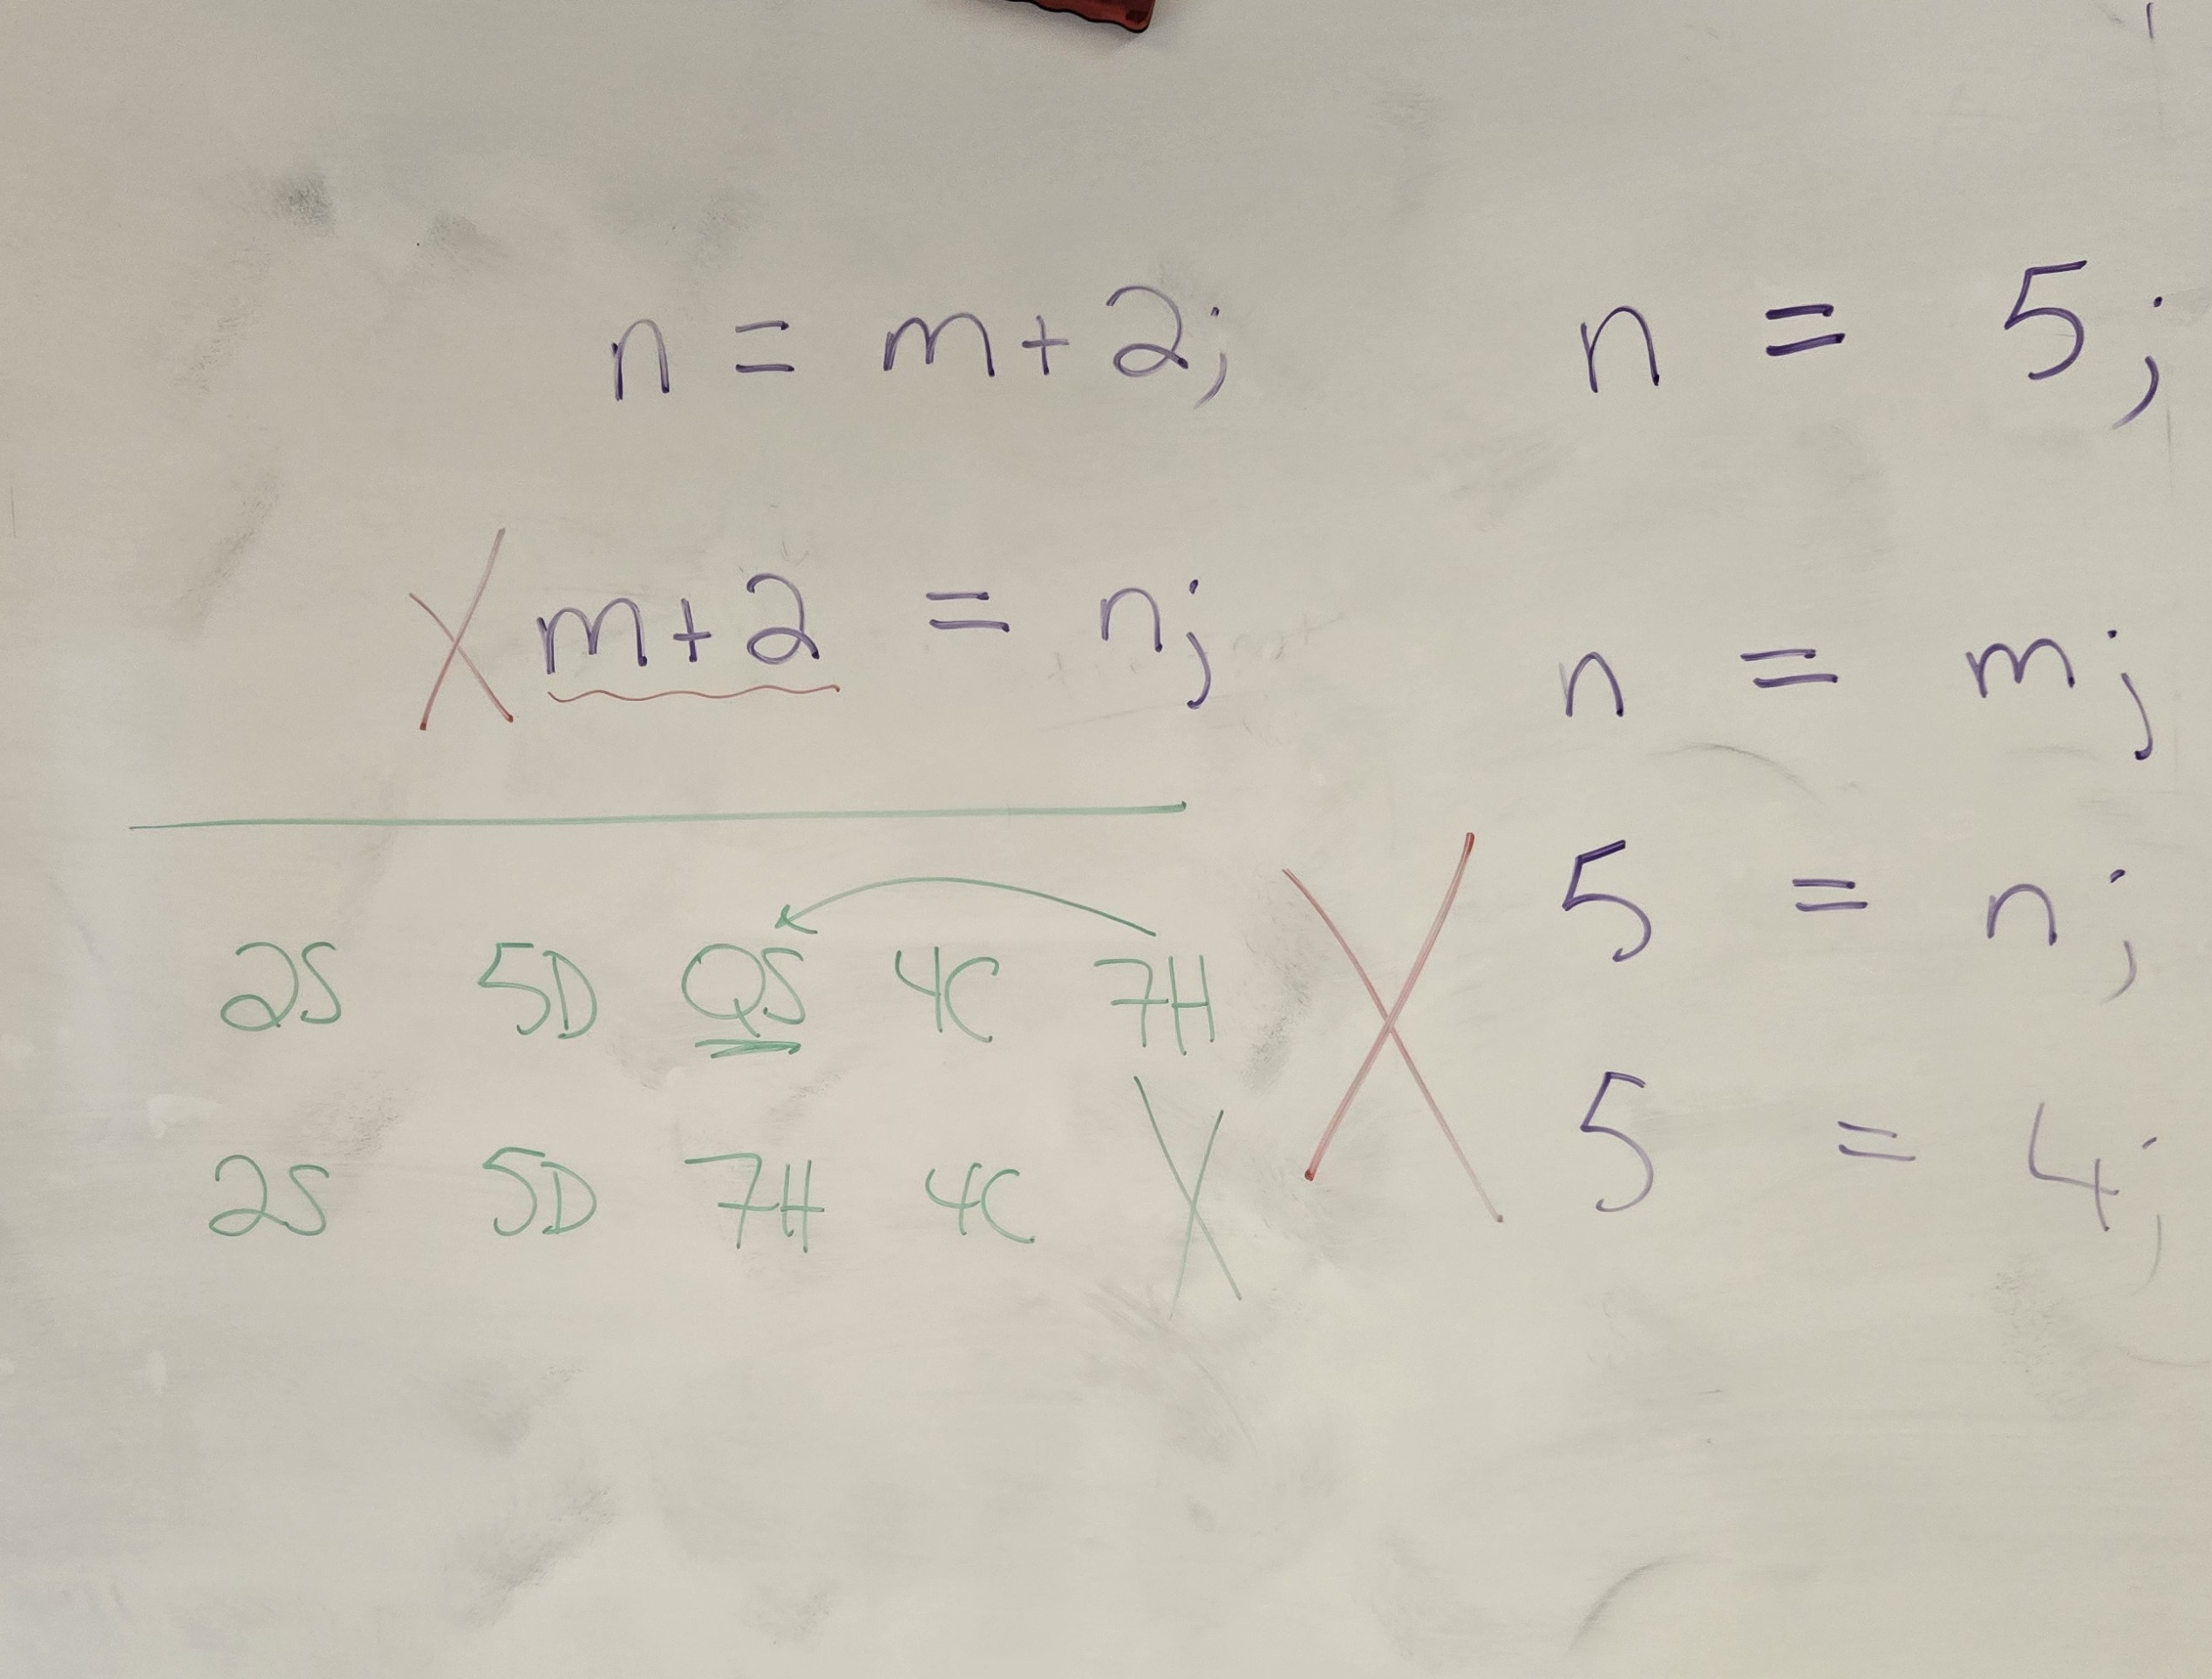 n = m+2;
X m+2 = n;
2S 5D QS 4C 7H
2S 5D 7H 4C X
n = 5;
n = m;
X 5 = n;
5 = 4;